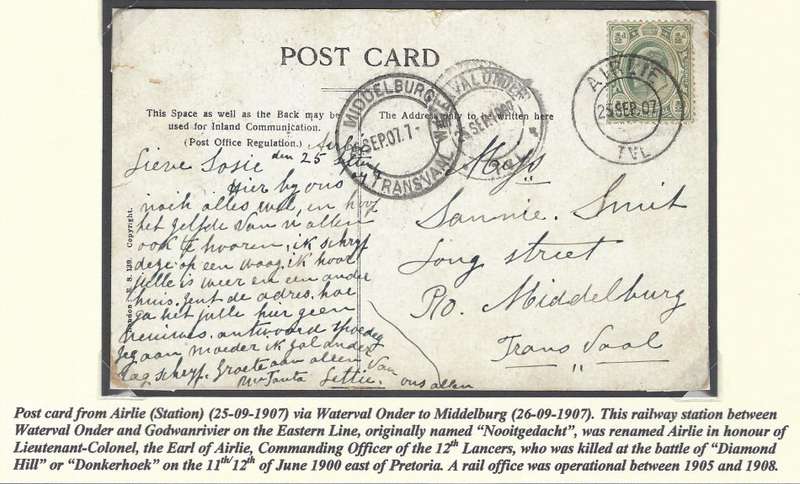 POST CARD
This Space as well as the Back may be
used for Inland Communication.
(Post Office Regulation.)
The Address only to be written here
AIRLIE
25 SEP. 07
TVL
MIDDELBURG
SEP. 07. 7-
TRANSVAAL
WATERVAL ONDER
SEP 1907
½d ½d
London E. S. 139. Copyright.
den 25 Septemb
Lieve Sosie
Hier by ons
noch alles wel, en hoop
het zelfde van u allen
ook te hooren, ik schryf
deze op een waag, ik hoor
julle is weer en een ander
huis. Zent de adres, hoe
ga het julle hier geen
neiuwes. antwoord spoedig
Zeg aan moeder ik zal ander
dag schryf. Groete aan allen van
Tanta Lettie ons allen
Miss
Sannie. Smit
Long street
P/o. Middelburg
Transvaal
Post card from Airlie (Station) (25-09-1907) via Waterval Onder to Middelburg (26-09-1907). This railway station between
Waterval Onder and Godwanrivier on the Eastern Line, originally named “Nooitgedacht”, was renamed Airlie in honour of
Lieutenant-Colonel, the Earl of Airlie, Commanding Officer of the 12th Lancers, who was killed at the battle of “Diamond
Hill” or “Donkerhoek” on the 11th/12th of June 1900 east of Pretoria. A rail office was operational between 1905 and 1908.